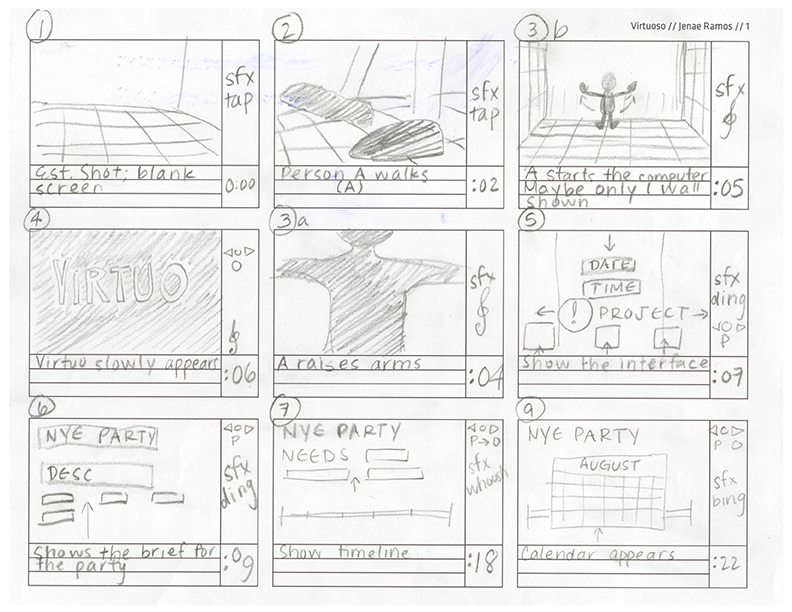 Virtuoso // Jenae Ramos // 1
1
sfx
tap
Est. Shot; blank
screen
0:00
2
sfx
tap
Person A walks
(A)
:02
3b
sfx
A starts the computer
Maybe only 1 wall
shown
:05
4
VIRTUO
O
Virtuo slowly appears
:06
3a
sfx
A raises arms
:04
5
DATE
TIME
! PROJECT
sfx
ding
P
Show the interface
:07
6
NYE PARTY
DESC
P
sfx
ding
Shows the brief for
the party
:09
7
NYE PARTY
NEEDS
P→O
sfx
whoosh
Show timeline
:18
9
NYE PARTY
AUGUST
P O
sfx
bing
Calendar appears
:22